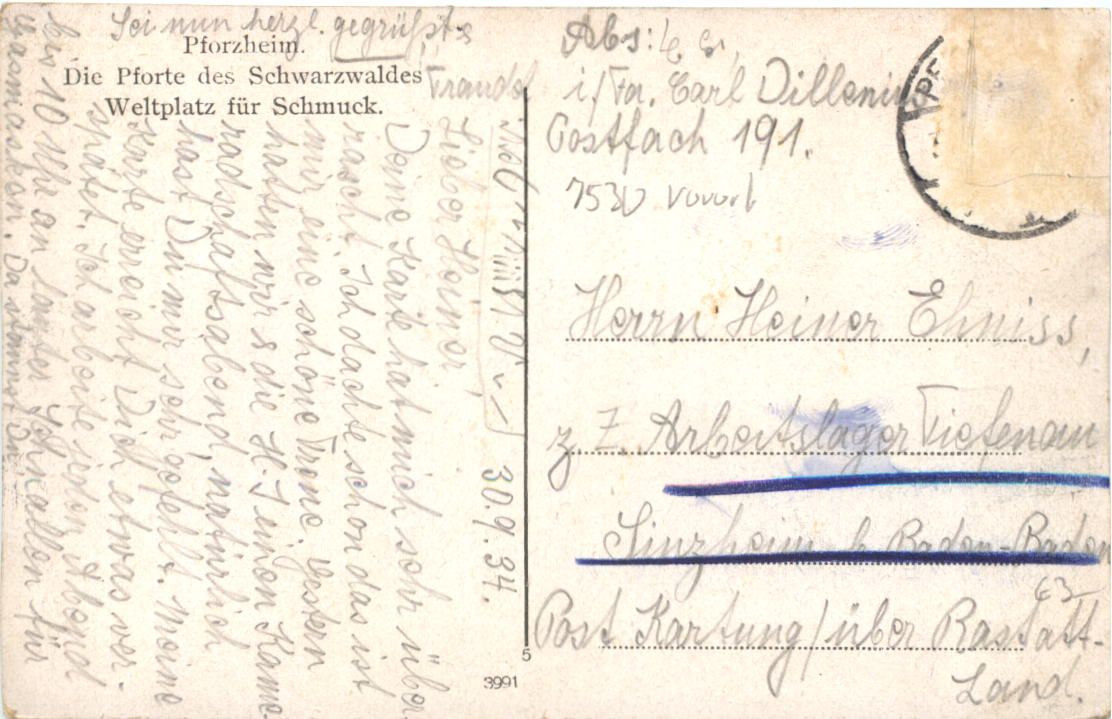 Pforzheim.
Die Pforte des Schwarzwaldes
Weltplatz für Schmuck.
30.9.34.
Lieber Heiner,
Deine Karte hat mich sehr über-
rascht. Ich dachte schon das ist
mir eine schöne Treue. Gestern
hatten wir die H.J. einen Kame-
radschaftsabend, natürlich
hast Du mir sehr gefehlt. Meine
Karte erreicht Dich etwas ver-
spätet. Ich arbeite jeden Abend
bis 10 Uhr an lauter Schnallen für
Gasmasken. Da kannst Du
Sei nun herzl. gegrüßt
Traudel
3991
5
Abs:
i/Fa. Carl Dillenius
Postfach 191.
7530
Herrn Heiner Ehniss,
z. Z. Arbeitslager Tiefenau
Sinzheim b Baden-Baden
Post Kartung/über Rastatt-
Land.